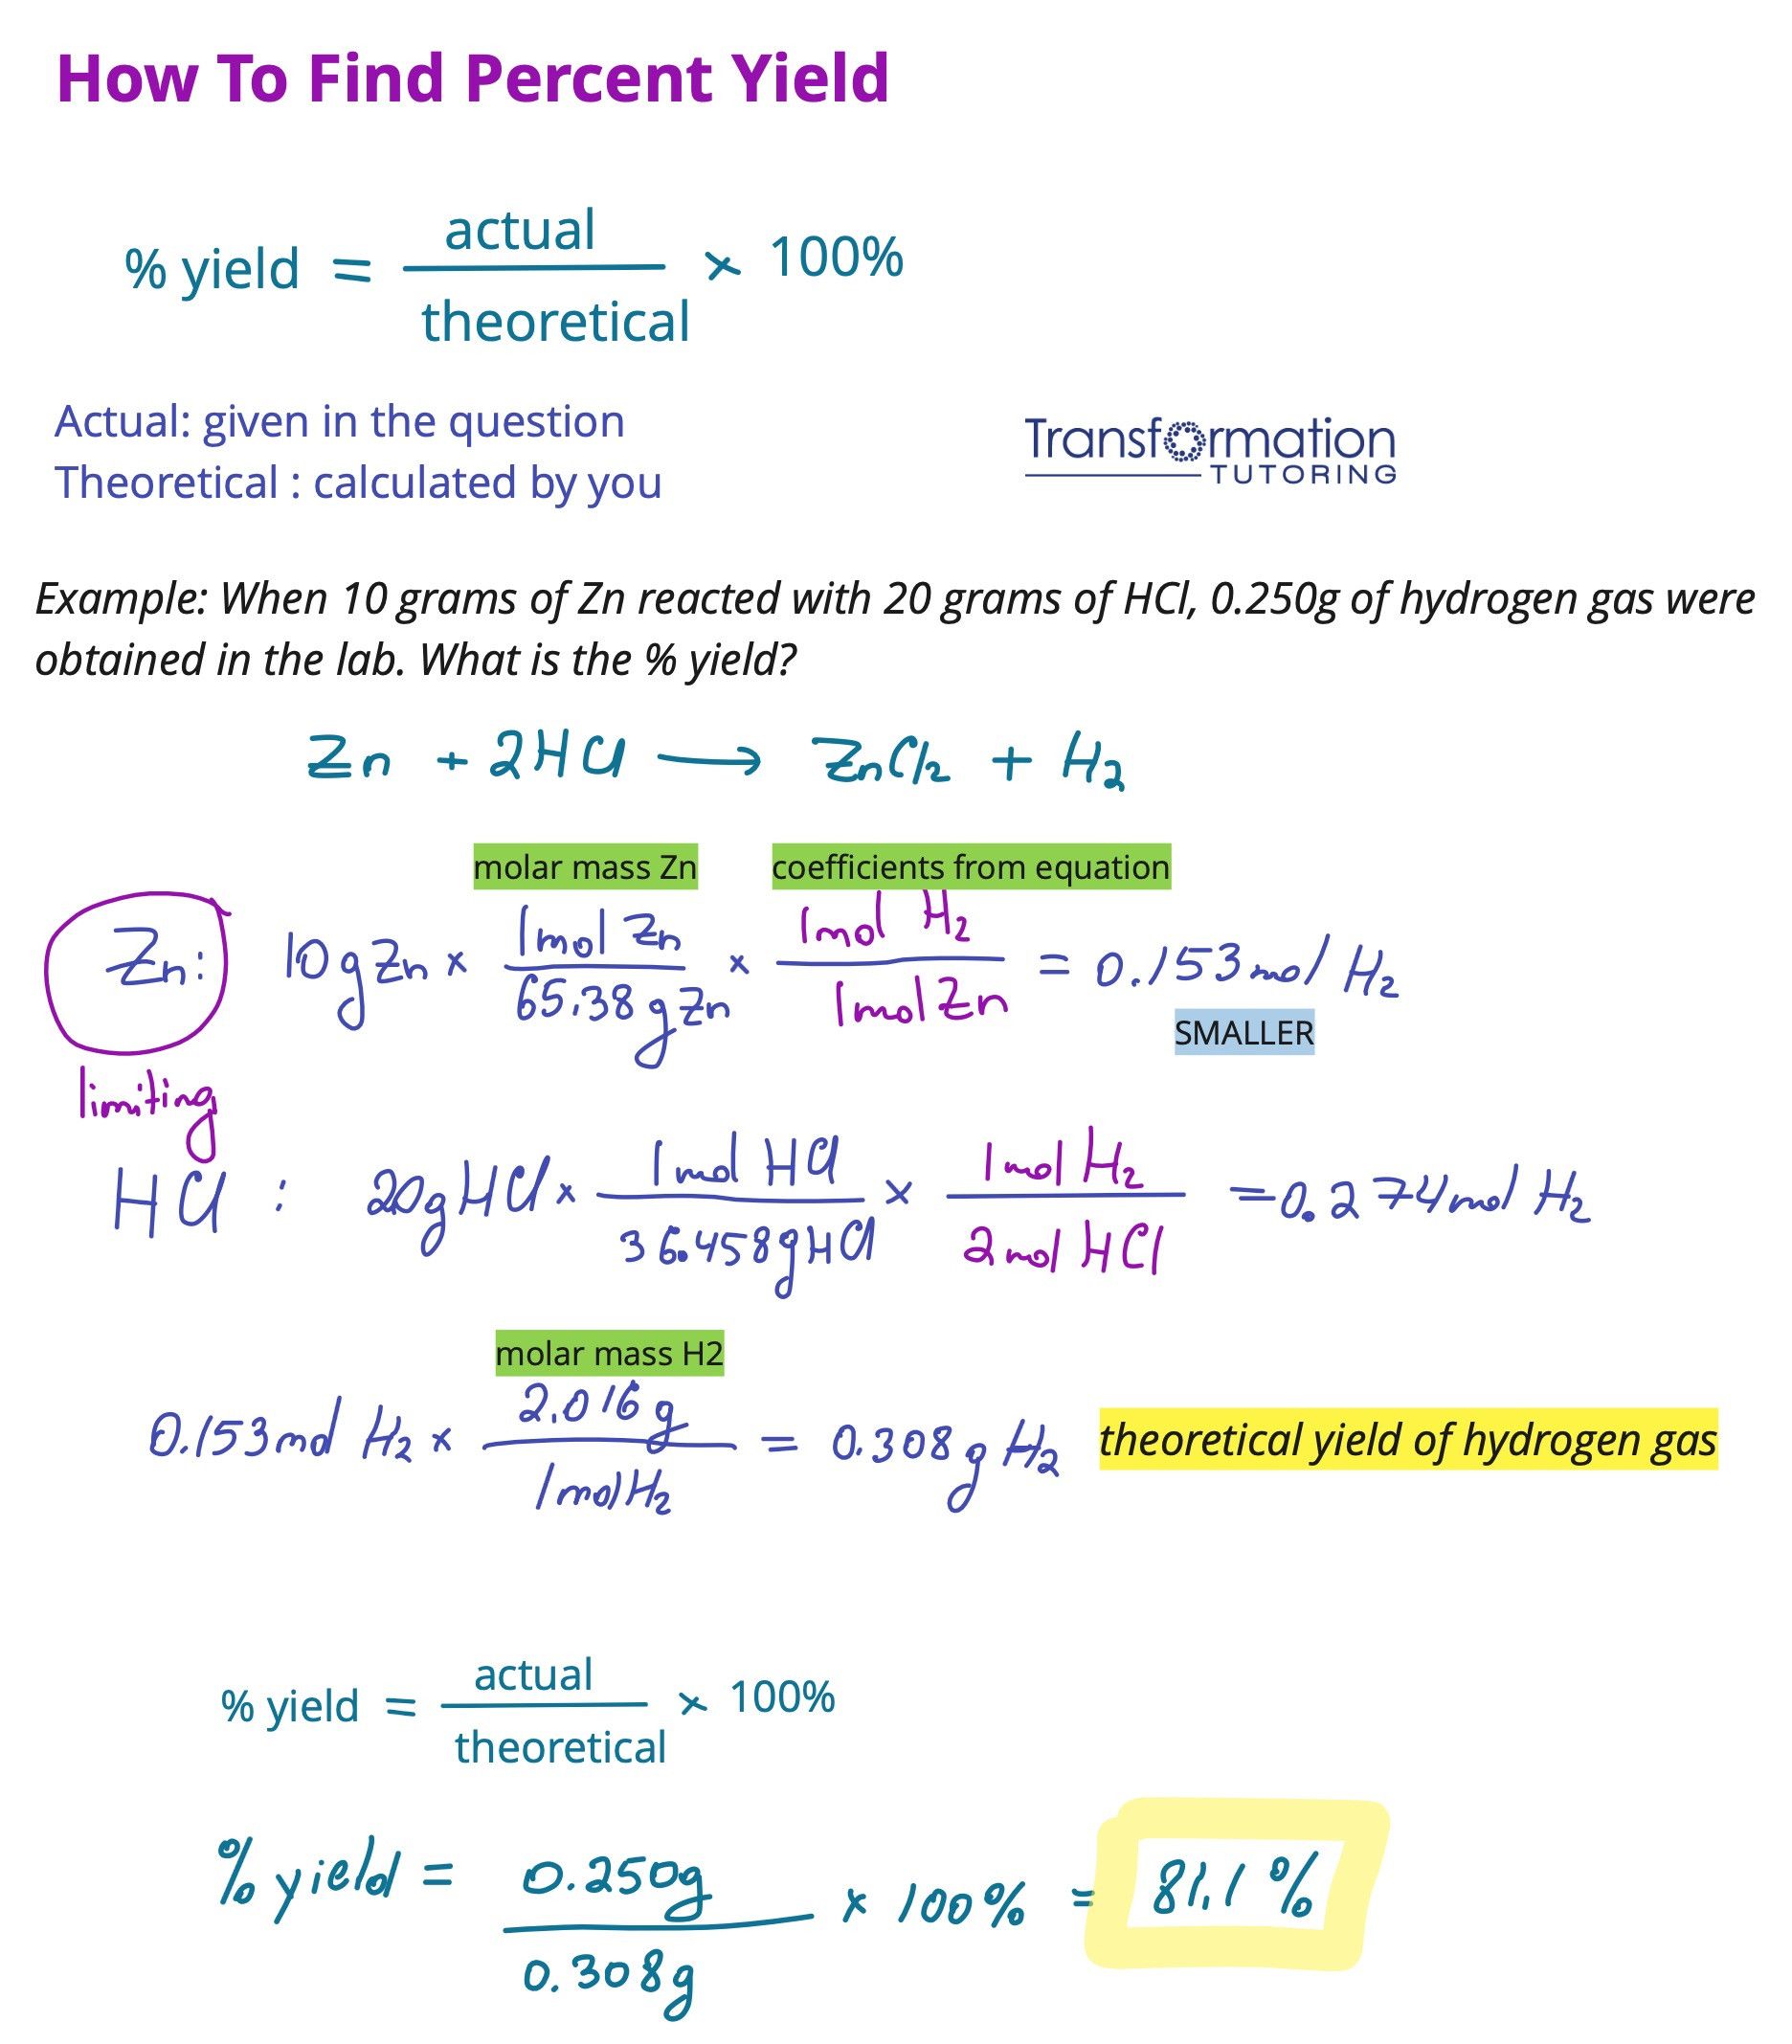 How To Find Percent Yield
% yield = actual / theoretical × 100%
Actual: given in the question
Theoretical : calculated by you
Transformation
TUTORING
Example: When 10 grams of Zn reacted with 20 grams of HCl, 0.250g of hydrogen gas were
obtained in the lab. What is the % yield?
Zn + 2HCl → ZnCl₂ + H₂
molar mass Zn coefficients from equation
Zn: 10 g Zn × 1 mol Zn / 65.38 g Zn × 1 mol H₂ / 1 mol Zn = 0.153 mol H₂
SMALLER
limiting
HCl : 20g HCl × 1 mol HCl / 36.458g HCl × 1 mol H₂ / 2 mol HCl = 0.274 mol H₂
molar mass H2
0.153 mol H₂ × 2.016 g / 1 mol H₂ = 0.308 g H₂ theoretical yield of hydrogen gas
% yield = actual / theoretical × 100%
% yield = 0.250g / 0.308g × 100% = 81.1 %